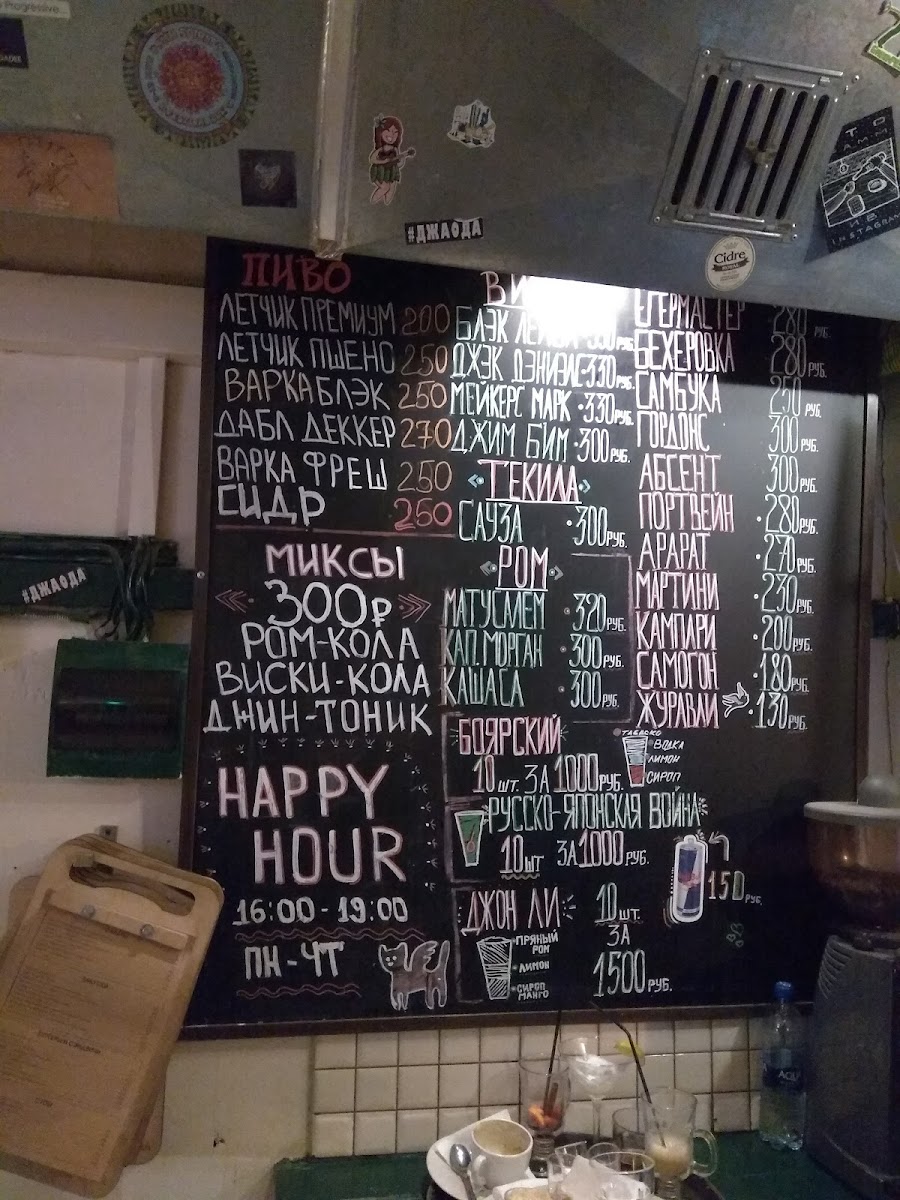 Progressive
#ДЖАОДА
Cidre
ROYAL
INSTAGRAM
#ДЖАОДА
ПИВО
ЛЕТЧИК ПРЕМИУМ 200
ЛЕТЧИК ПШЕНО 250
ВАРКА БЛЭК 250
ДАБЛ ДЕККЕР 270
ВАРКА ФРЕШ 250
СИДР 250
МИКСЫ
300₽
РОМ-КОЛА
ВИСКИ-КОЛА
ДЖИН-ТОНИК
HAPPY
HOUR
16:00 - 19:00
ПН - ЧТ
БЛЭК
ДЖЭК ДЭНИЭЛС 330 РУБ.
МЕЙКЕРС МАРК 330 РУБ.
ДЖИМ БИМ 300 РУБ.
ТЕКИЛА
САУЗА 300 РУБ.
РОМ
МАТУСАЛЕМ 320 РУБ.
КАП. МОРГАН 300 РУБ.
КАШАСА 300 РУБ.
ЕГЕРМАСТЕР 280 РУБ.
БЕХЕРОВКА 280 РУБ.
САМБУКА 250 РУБ.
ГОРДОНС 300 РУБ.
АБСЕНТ 300 РУБ.
ПОРТВЕЙН 280 РУБ.
АРАРАТ 270 РУБ.
МАРТИНИ 230 РУБ.
КАМПАРИ 200 РУБ.
САМОГОН 180 РУБ.
ЖУРАВЛИ 130 РУБ.
БОЯРСКИЙ
10 ШТ. ЗА 1000 РУБ.
ТАБАСКО
ВОДКА
ЛИМОН
СИРОП
РУССКО-ЯПОНСКАЯ ВОЙНА
10 ШТ ЗА 1000 РУБ.
150 РУБ.
ДЖОН ЛИ
10 ШТ.
ЗА
1500 РУБ.
ПРЯНЫЙ
РОМ
ЛИМОН
СИРОП
МАНГО